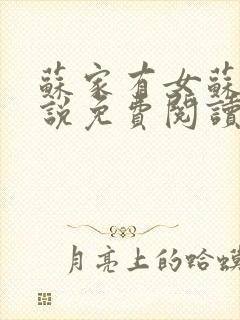 蘇家有女蘇
說免費閱讀
月亮上的蛤蟆